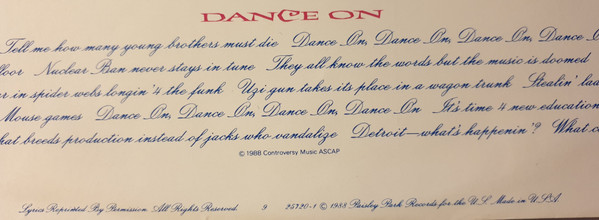 DANCE ON
Tell me how many young brothers must die Dance On, Dance On, Dance On, Dance
loor Nuclear Ban never stays in tune They all know the words but the music is doomed
er in spider webs longin' 4 the funk Uzi gun takes its place in a wagon trunk Stealin' lad
Mouse games Dance On, Dance On, Dance On, Dance On It's time 4 new education
hat breeds production instead of jacks who vandalize Detroit—what's happenin'? What c
© 1988 Controversy Music ASCAP
Lyrics Reprinted By Permission All Rights Reserved. 9 25720-1 © 1988 Paisley Park Records for the U.S. Made in U.S.A.